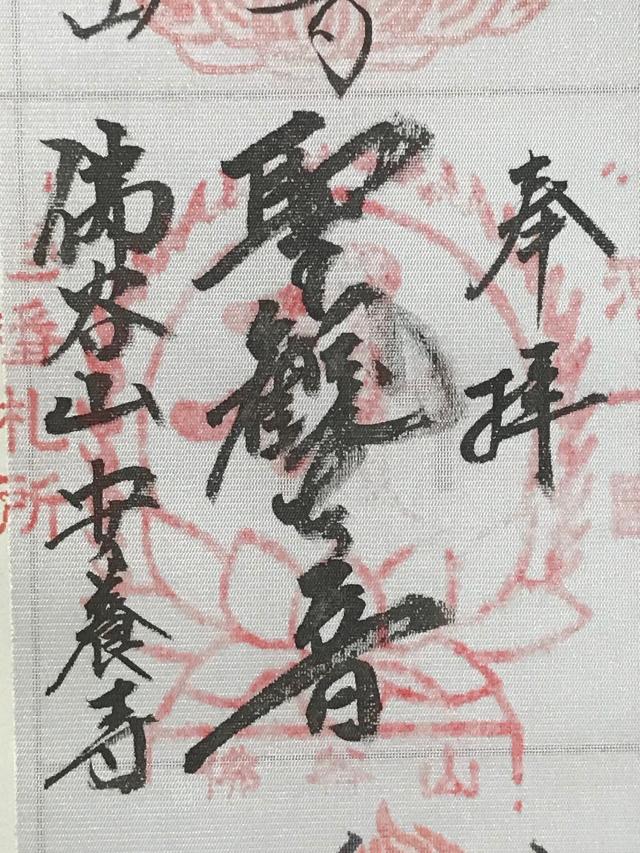 奉拝
聖觀音
佛谷山安養寺
番札所
佛谷山